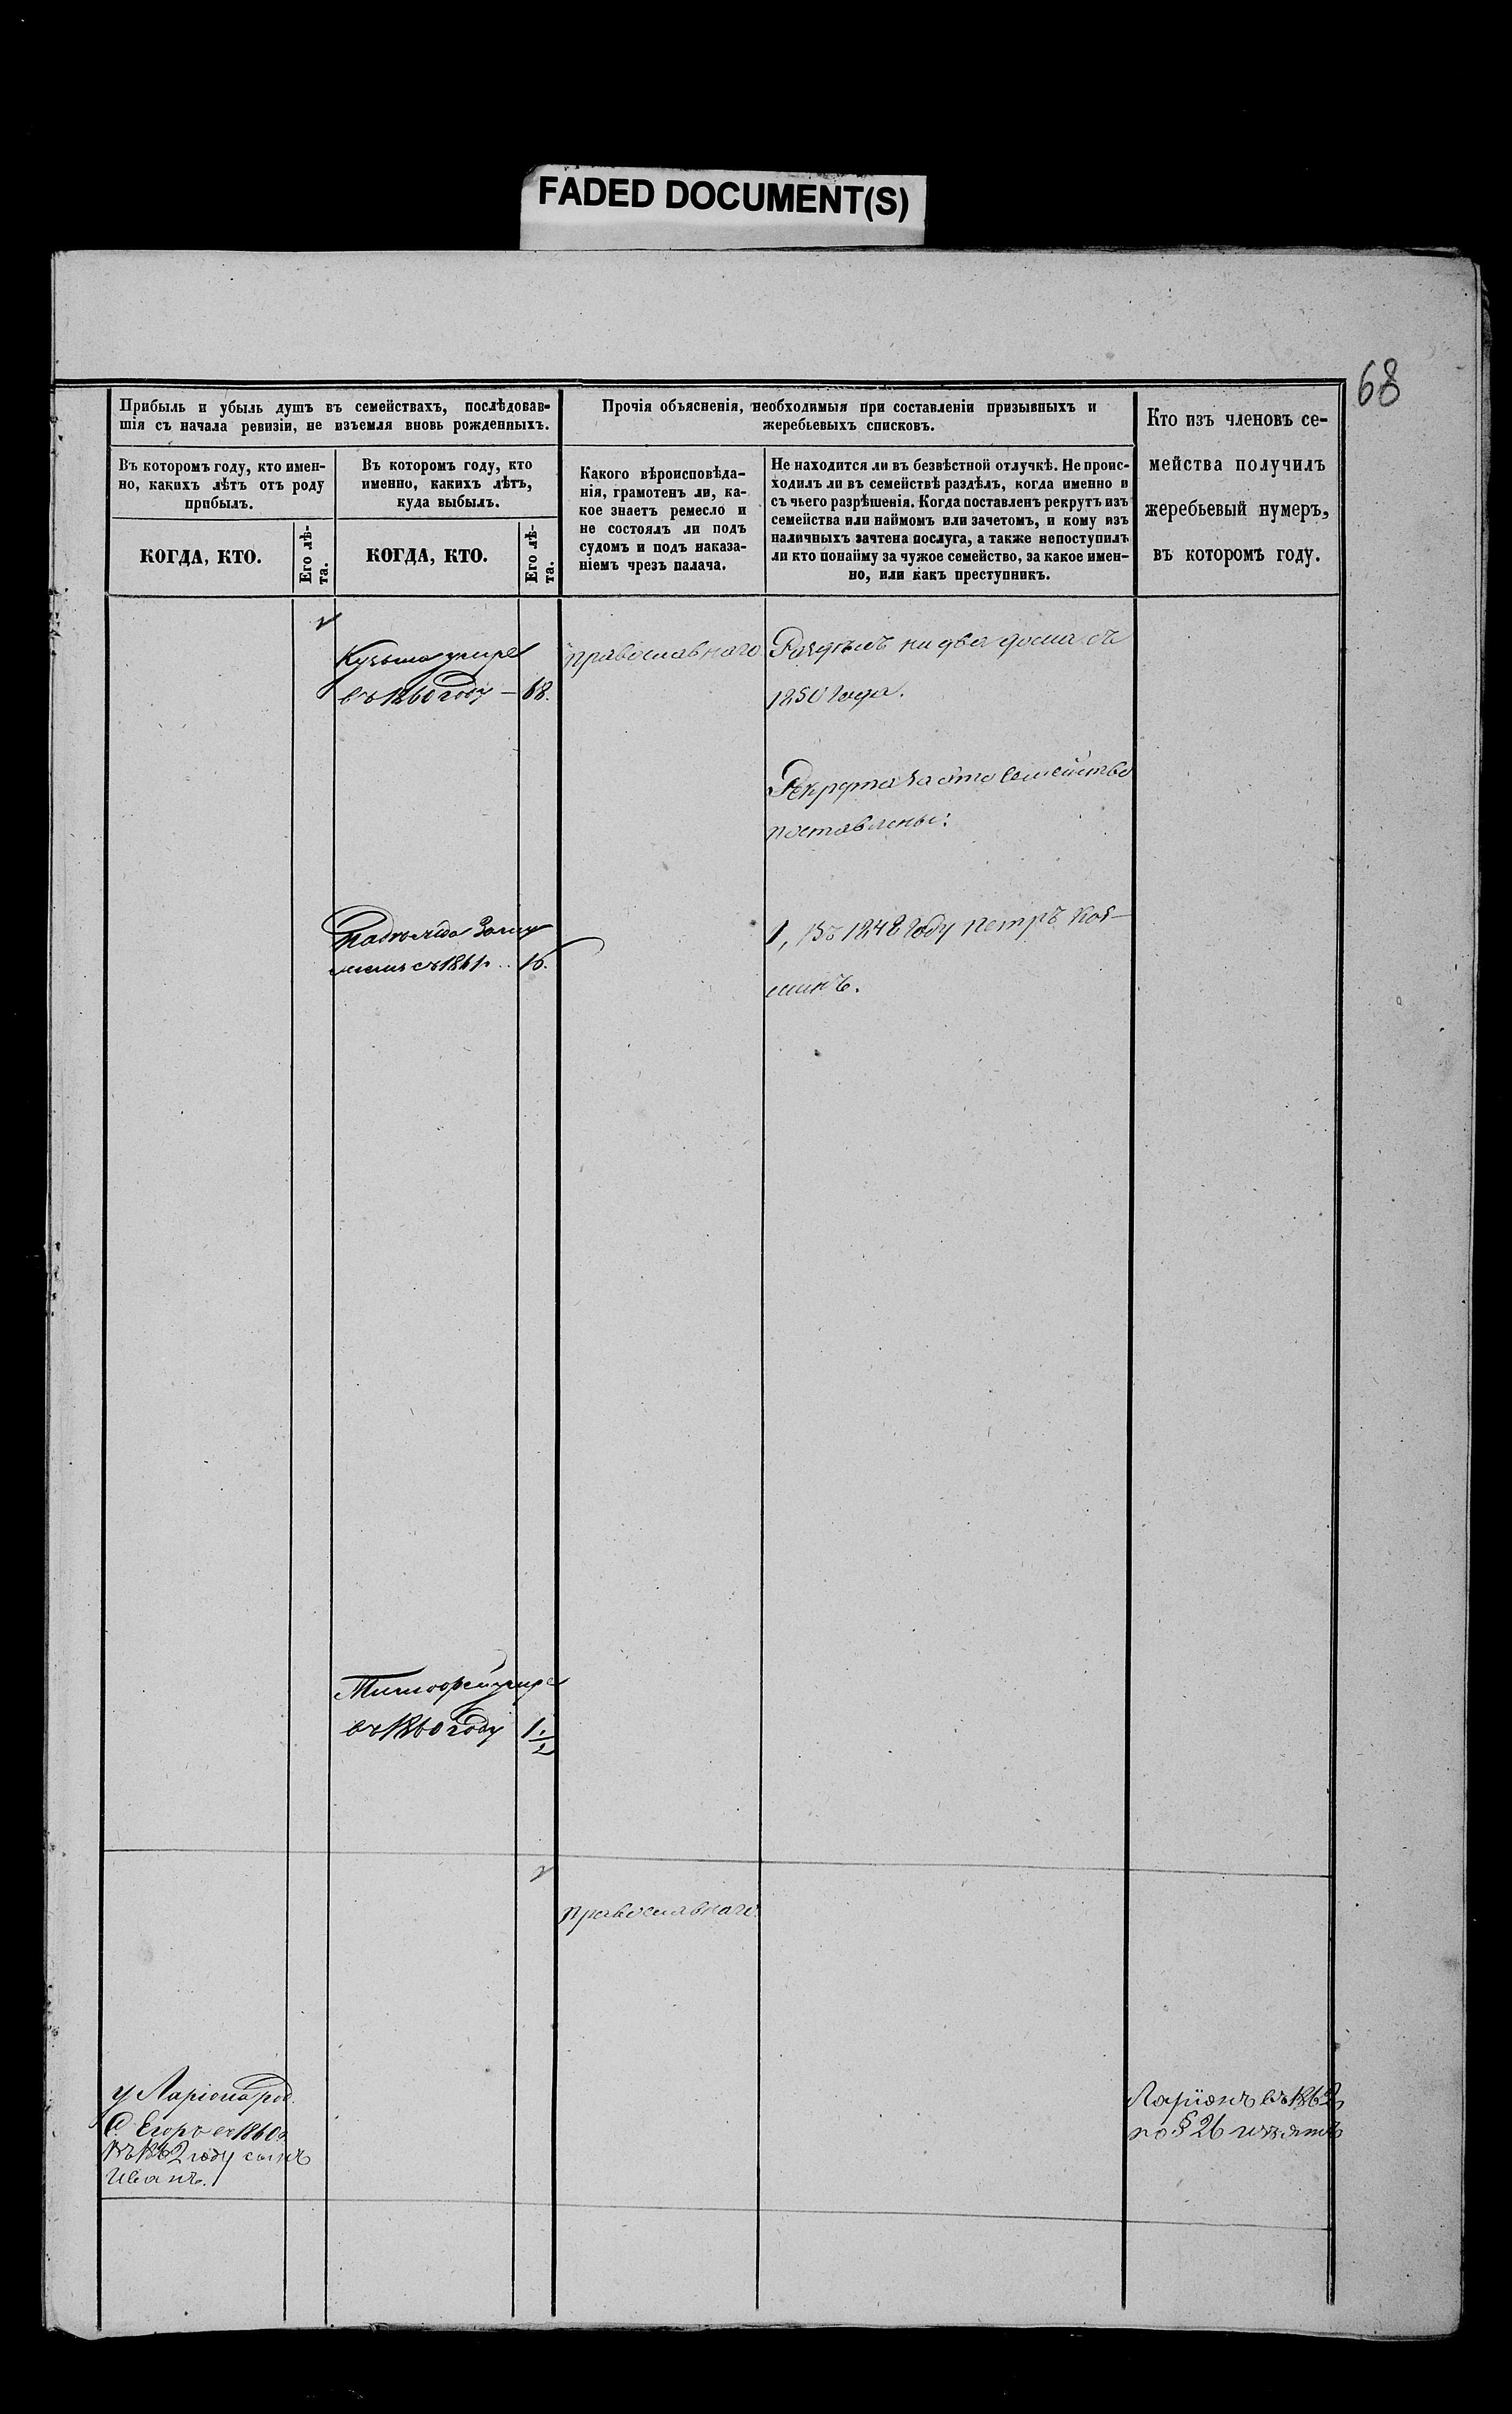 FADED DOCUMENT(S)
68
Прибыль и убыль душъ въ семействахъ, послѣдовав-
шія съ начала ревизіи, не изъемля вновь рожденныхъ.
Въ которомъ году, кто имен-
но, какихъ лѣтъ отъ роду
прибылъ.
КОГДА, КТО.
Его лѣ-
та.
Въ которомъ году, кто
именно, какихъ лѣтъ,
куда выбылъ.
КОГДА, КТО.
Его лѣ-
та.
Прочія объясненія, необходимыя при составленіи призывныхъ и
жеребьевыхъ списковъ.
Какого вѣроисповѣда-
нія, грамотенъ ли, ка-
кое знаетъ ремесло и
не состоялъ ли подъ
судомъ и подъ наказа-
ніемъ чрезъ палача.
Не находится ли въ безвѣстной отлучкѣ. Не проис-
ходилъ ли въ семействѣ раздѣлъ, когда именно и
съ чьего разрѣшенія. Когда поставленъ рекрутъ изъ
семейства или наймомъ или зачетомъ, и кому изъ
наличныхъ зачтена послуга, а также непоступилъ
ли кто понайму за чужое семейство, за какое имен-
но, или какъ преступникъ.
Кто изъ членовъ се-
мейства получилъ
жеребьевый нумеръ,
въ которомъ году.
Кузьма умире
въ 1860 году — 68.
православнаго
Раздѣлъ на два дома съ
1850 года.
Рекрута за это семейство
поставлены:
заму
съ 1861 г. .. 16.
1, Въ 1848 году Петръ Коз-
минъ.
Тимофей умире
въ 1860 году 1 1/2
православнаго
у Ларіона род.
С. Егоръ въ 1860 г.
Въ 1862 году сынъ
Иванъ.
Ларіонъ въ 1862
по § 26 изъятъ